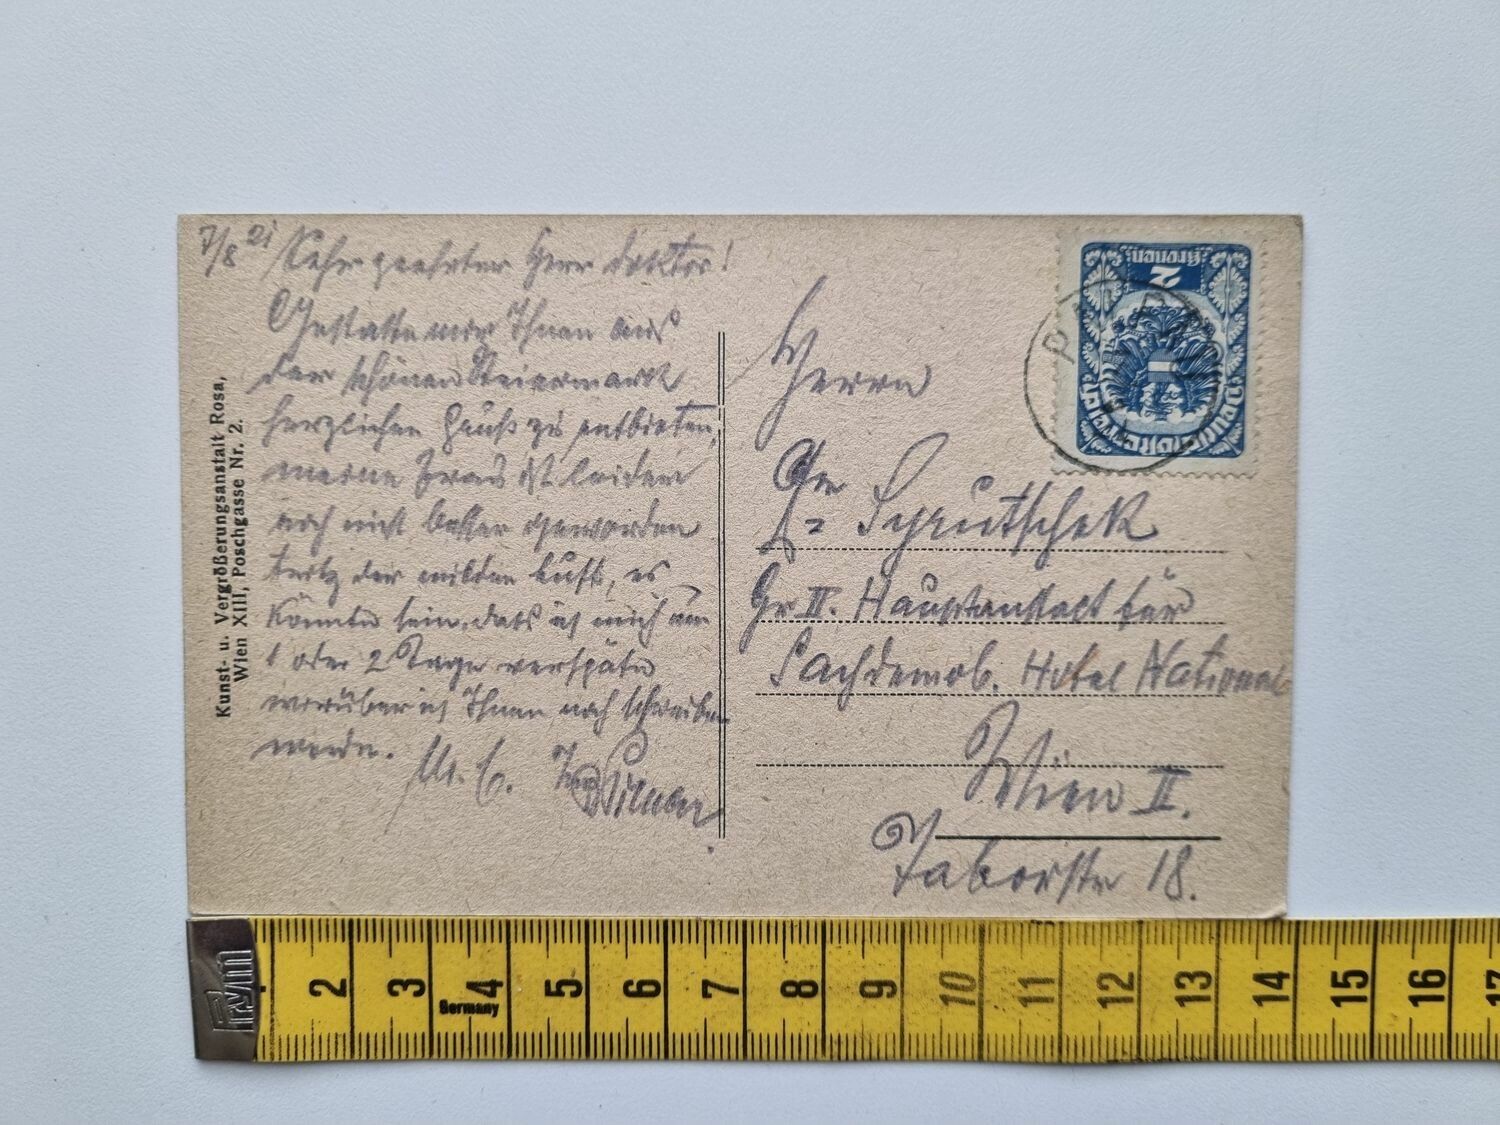 7/8 21 Sehr geehrter Herr Doktor!
Gestatte mir Ihnen aus
der schönen Steiermark
herzlichen Gruß zu entbieten,
meine Frau ist leider
noch nicht besser geworden
trotz der milden Luft, es
könnte sein, dass ich mich um
1 oder 2 Tage verspäte
worüber ich Ihnen noch schreiben
werde.
Kunst- u. Vergrößerungsanstalt Rosa,
Wien XIII, Poschgasse Nr. 2.
2
Kronen
Deutschösterreich
Herrn
Gr II. Hauptanstalt für
Sachdemob. Hotel National
Wien II.
Taborstr 18.
Prym
Germany
2 3 4 5 6 7 8 9 10 11 12 13 14 15 16 17